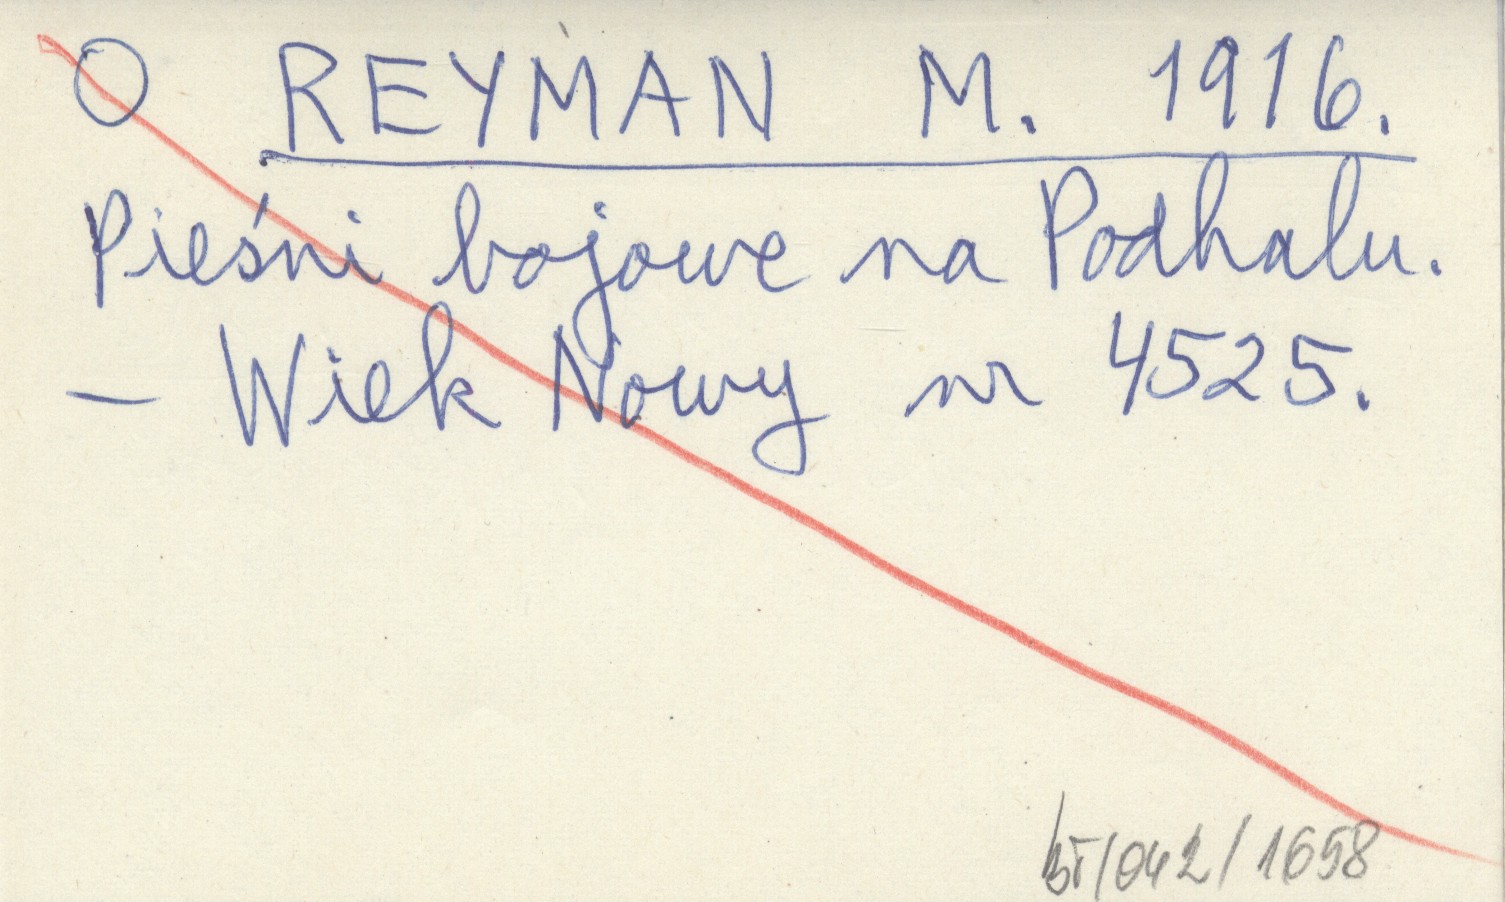 O REYMAN M. 1916.
Pieśni bojowe na Podhalu.
– Wiek Nowy nr 4525.
bt/042/1658